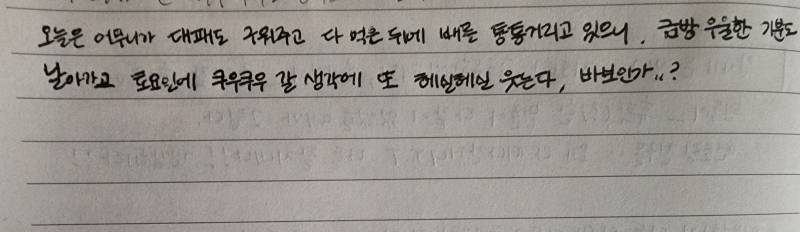 오늘은 어무니가 대패도 구워주고 다 먹은 뒤에 배를 통통거리고 있으니, 금방 우울한 기분도
날아가고 토요일에 쿠우쿠우 갈 생각에 또 헤실헤실 웃는다, 바보인가..?